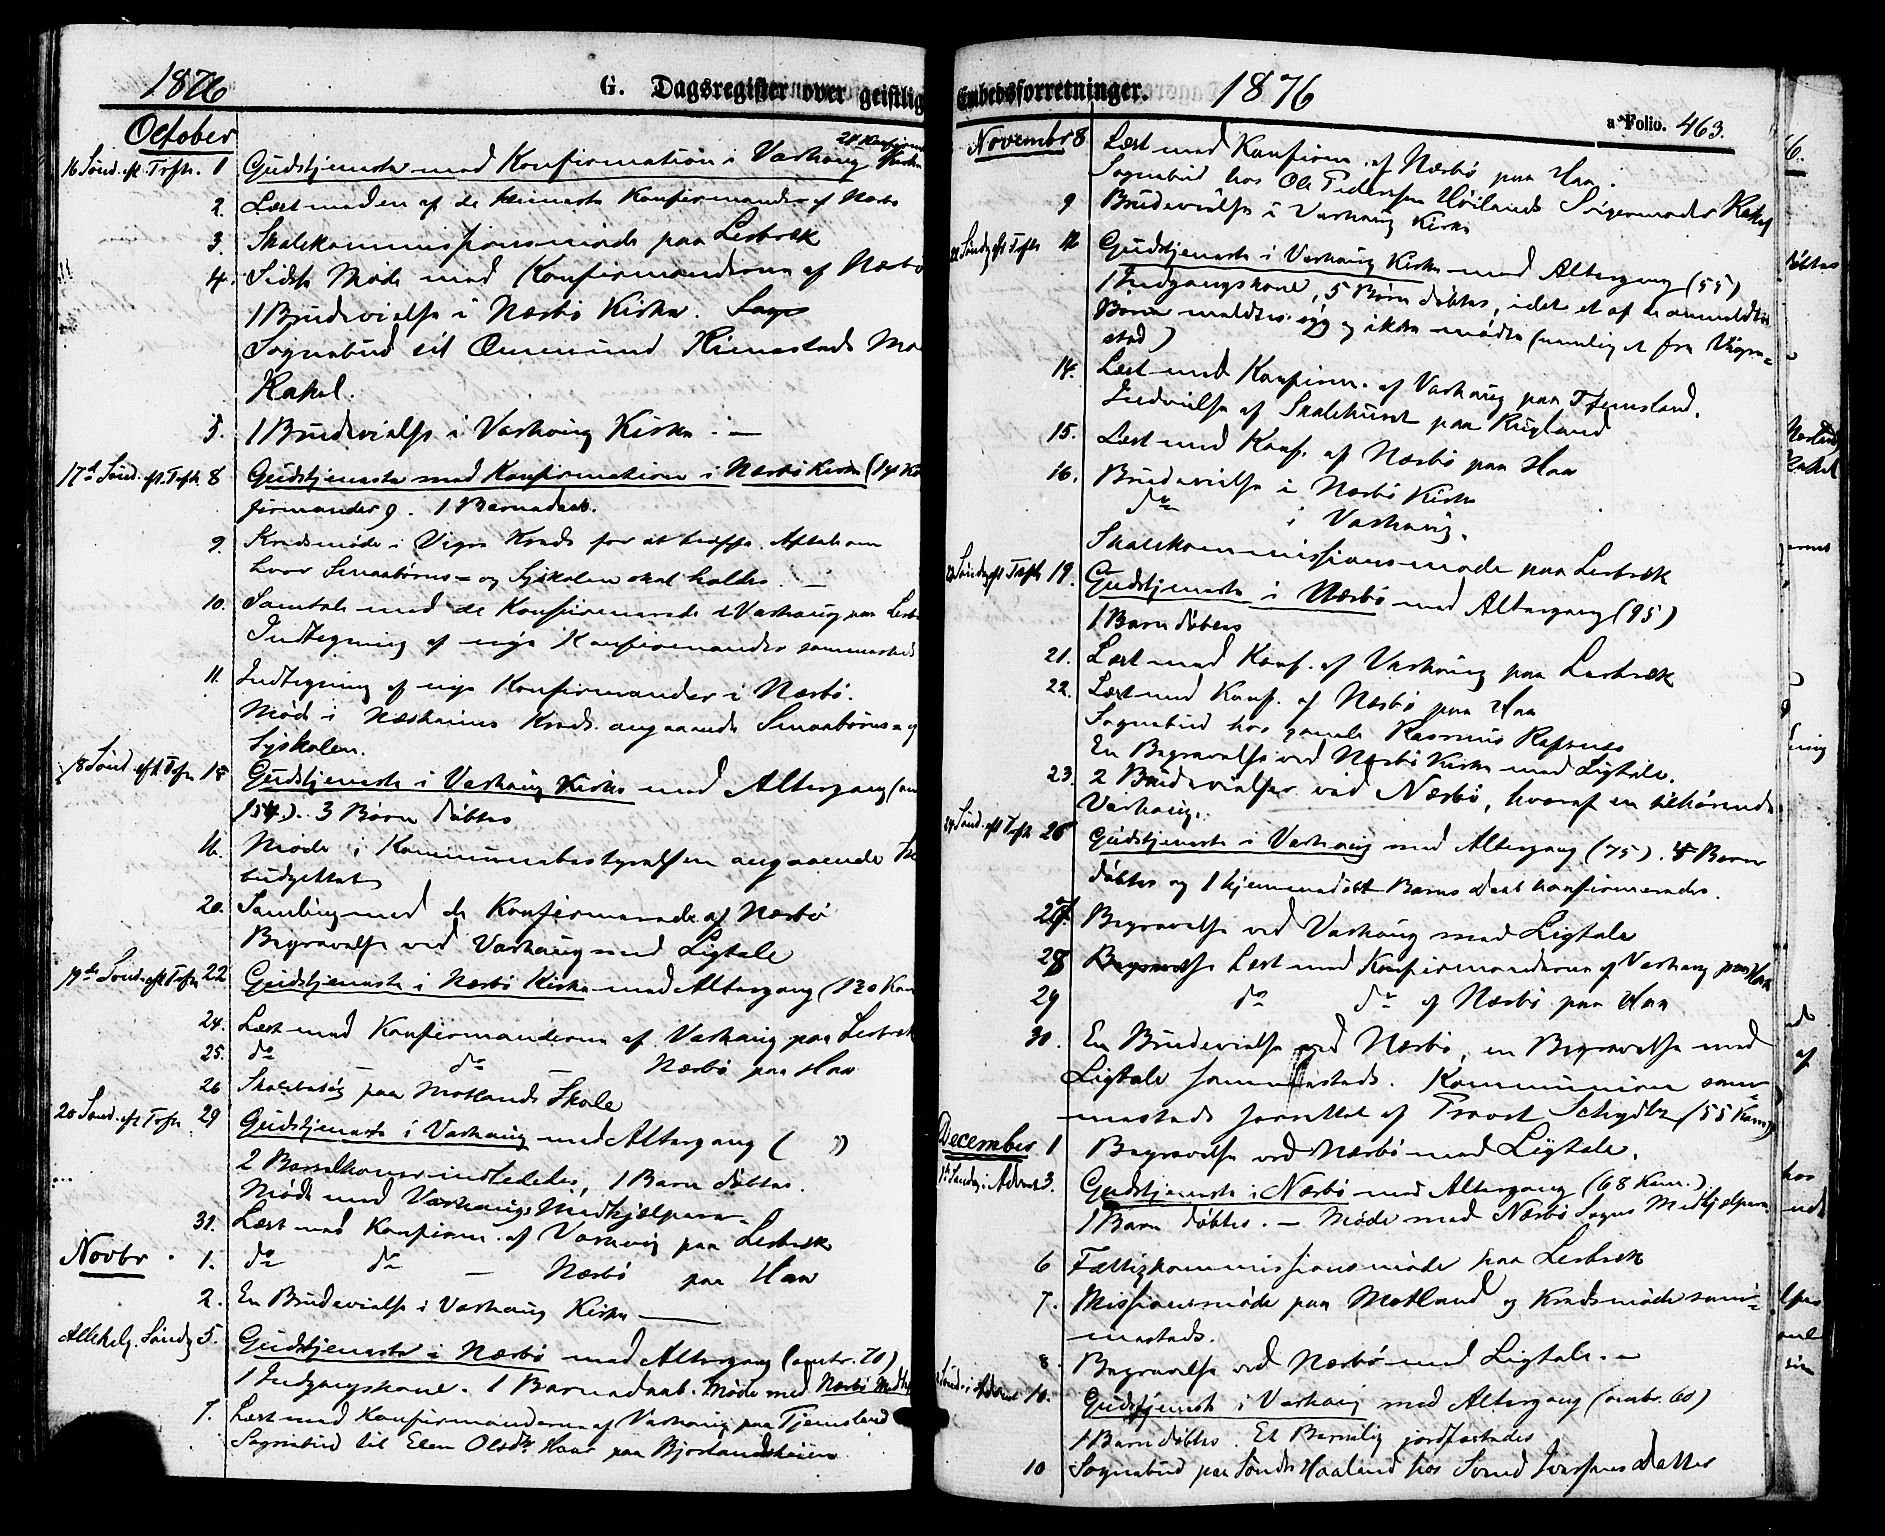 1876
G. Dagsregister over geistlig
October
24 Konfirm
16 Sønd. eft. Trfh. 1 Gudstjeneste med Konfirmation i Varhoug Kirke
2. Læst med en af de Konfirmander af Nærbø
3. Skolekommissionsmøde paa Lerbrek
4. Sidste Møde med Konfirmanderne af Nærbø
1 Brudevielse i Nærbø Kirke.
Sognebud til Omund
Rakel.
5. 1 Brudevielse i Varhoug Kirke. —
17de Sønd. eft. Trfh 8 Gudstjeneste med Konfirmation i Nærbø Kirke (14 Ko
firmander). 1 Barnedaab.
9. Kredsmøde i Vigre Kreds for at træffe Aftale om
hvor Smaabørns- og Syskolen skal holdes. —
10. Samtale med de Konfirmerede i Varhoug paa Lerbr
Indtegning af nye Konfirmander sammesteds
11. Indtegning af nye Konfirmander i Nærbø.
Møde i Næsheims Kreds angaaende Smaabørns- og
Syskolen.
18 Sønd. eft Trfh 15 Gudstjeneste i Varhoug Kirke med Altergang (
154). 3 Børn døbtes
16. Møde i Kommunebestyrelsen angaaende
budgettet
20. Samling med de Konfirmerede af Nærbø
Begravelse ved Varhoug med Ligtale
19de Sønd. eft Trfh 22 Gudstjeneste i Nærbø Kirke med Altergang (120 Kom
24. Læst med Konfirmanderne af Varhoug paa Lerbrek
25. do — do — Nærbø paa Haa
26 Skolebesøg paa Motlands Skole
20 Sønd. eft Trfh 29 Gudstjeneste i Varhoug med Altergang ( )
2 Barselkoner indledtes, 1 Barn døbtes.
Møde med Varhougs Medhjælpere.
31. Læst med Konfirm. af Varhoug paa Lerbrek
Novbr. 1. do do — Nærbø paa Haa
2. En Brudevielse i Varhoug Kirke —
Allehelg. Søndg 5. Gudstjeneste i Nærbø med Altergang (omtr. 70)
1 Indgangskone. 1 Barnedaab. Møde med Nærbø Medhj
7. Læst med Konfirmanderne af Varhoug paa Tjemsland
Sognebud til Elen Olsdtr Haar paa
Embedsforretninger. 1876
a Folio. 463.
Novembr 8 Læst med Konfirm. af Nærbø paa Haa.
Sognebud hos Ole Pedersen Høilands Svigermoder Rakel
9 Brudevielse i Varhoug Kirke
22 Søndg eft Trfh 12 Gudstjeneste i Varhoug Kirke med Altergang (55)
1 Indgangskone, 5 Børn døbtes, idet et af de anmeldte
Børn meldtes sygt og ikke mødte (nemlig et fra Vigre-
stad)
14. Læst med Konfirm. af Varhoug paa Tjemsland.
Indvielse af Skolehuset paa Rugland
15. Læst med Konf. af Nærbø paa Haa
16. Brudevielse i Nærbø Kirke
do i Varhoug.
Skolekommissionsmøde paa Lerbrek
23 Søndg eft Trfh 19. Gudstjeneste i Nærbø med Altergang (95)
1 Barn døbtes
21. Læst med Konf. af Varhoug paa Lerbrek
22. Læst med Konf. af Nærbø paa Haa
Sognebud hos gamle Rasmus Refsnes
En Begravelse ved Nærbø Kirke med Ligtale.
23. 2 Brudevielser ved Nærbø, hvoraf en tilhørende
Varhoug.
24 Sønd. eft Trfh 26 Gudstjeneste i Varhoug med Altergang (75). 4 Børn
døbtes og 1 hjemmedøbt Barns Daab konfirmeredes.
27. Begravelse ved Varhoug med Ligtale
28 Læst med Konfirmanderne af Varhoug paa Haa
29 do do af Nærbø paa Haa
30. En Brudevielse ved Nærbø, en Begravelse med
Ligtale sammesteds. Kommunion sam-
mesteds forrettet af Provst Schydtz (55 Kom)
December 1 Begravelse ved Nærbø med Ligtale.
1ste Søndg i Advent 3. Gudstjeneste i Nærbø med Altergang (68 Kom.)
1 Barn døbtes. — Møde med Nærbø Sogns Medhjælpere
6 Fattigkommissionsmøde paa Lerbrek
7. Missionsmøde paa Motland og Kredsmøde sam-
mesteds.
8. Begravelse ved Nærbø med Ligtale. —
Sønd. i Advent 10. Gudstjeneste i Varhoug med Altergang (omtr. 60)
1 Barn døbtes. Et Barnelig jordfæstedes
10 Sognebud paa Søndre Haaland hos Svend Iversens Datter